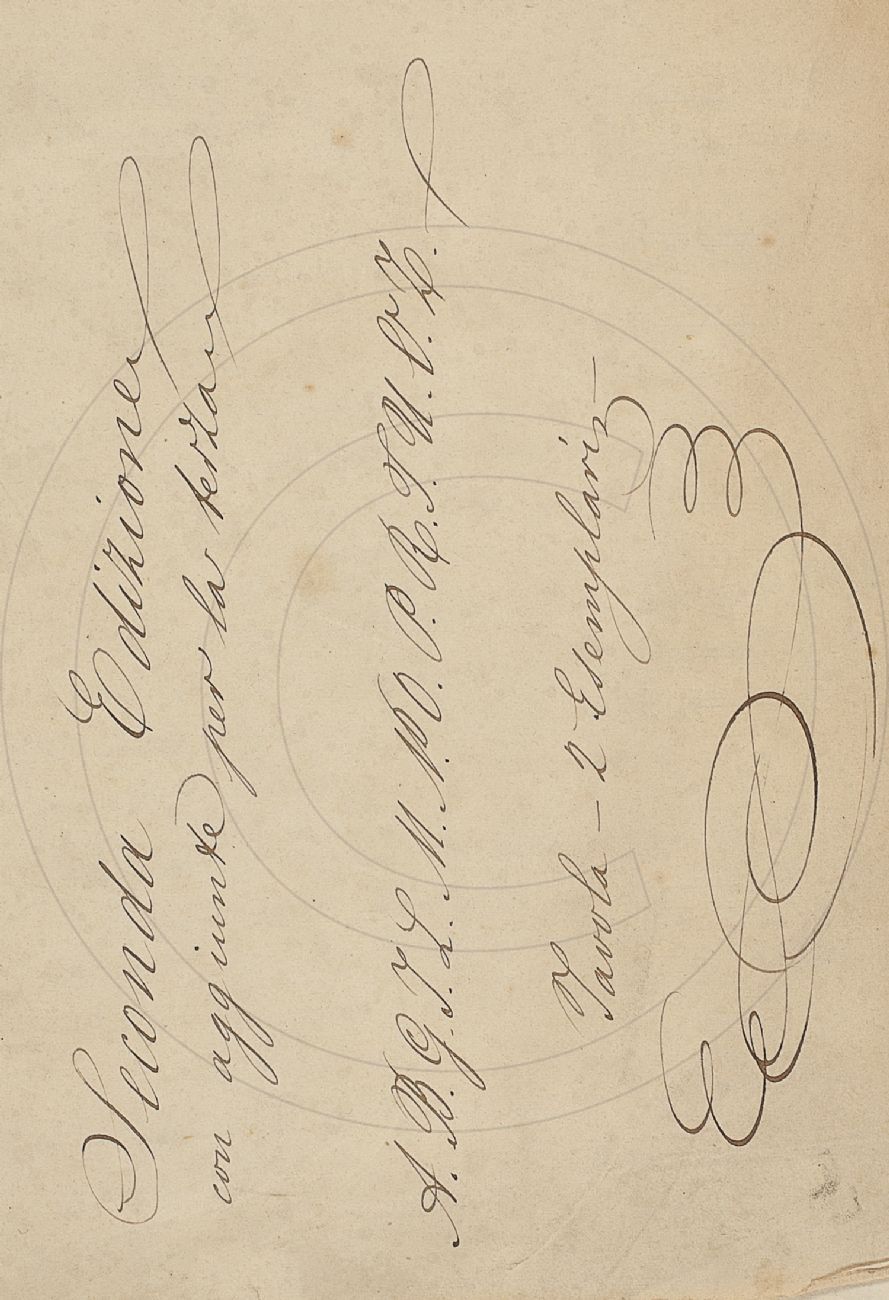 Seconda Edizione
con aggiunte per la terza
A. B. G. I. L. M. N. O. P. R. T. U. V. Z.
Tavola – 2 Esemplari –